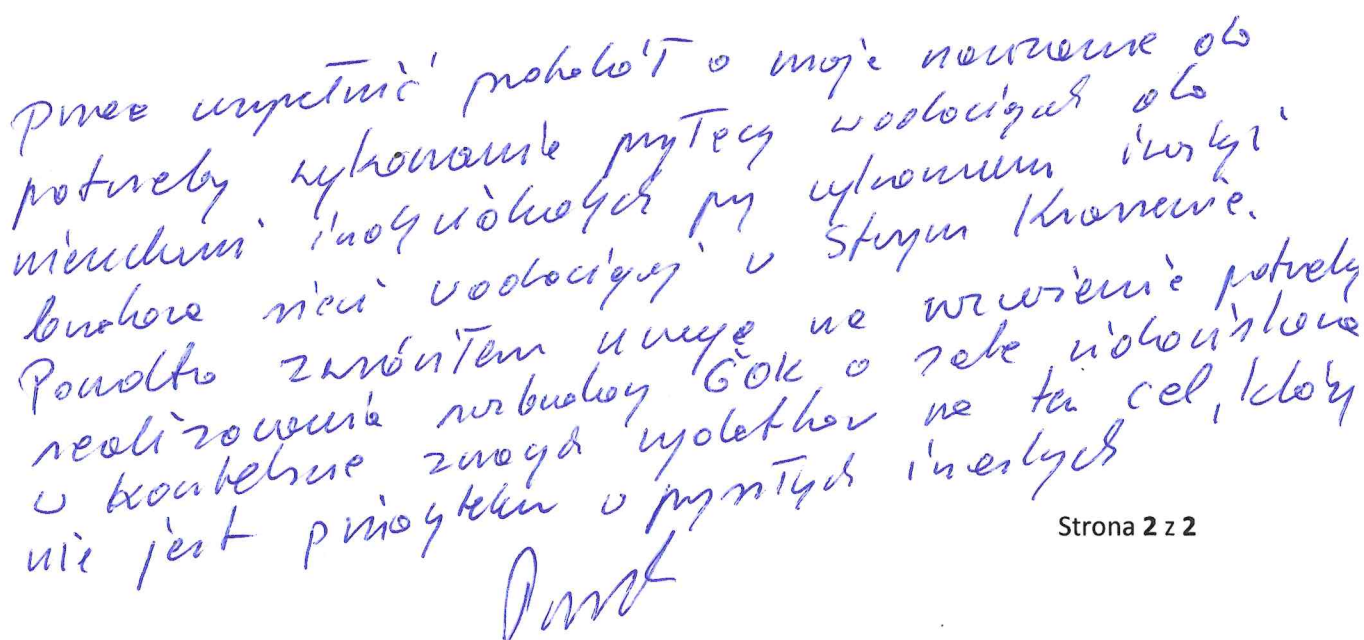 Proszę uzupełnić protokół o moje nawiązanie do
potrzeby wykonanie przyłączy wodociąg do
nieruchomi indywidualnych przy wykonaniu inwestycji
budowa sieci wodociągowej w Starym Krasnem.
Ponadto zwróciłem uwagę na rozważenie potrzeby
realizowania rozbudowy GOK o salę widowiskową
w kontekście znacznych wydatków na ten cel, który
nie jest priorytetem w przyszłych inwestycjach
Strona 2 z 2